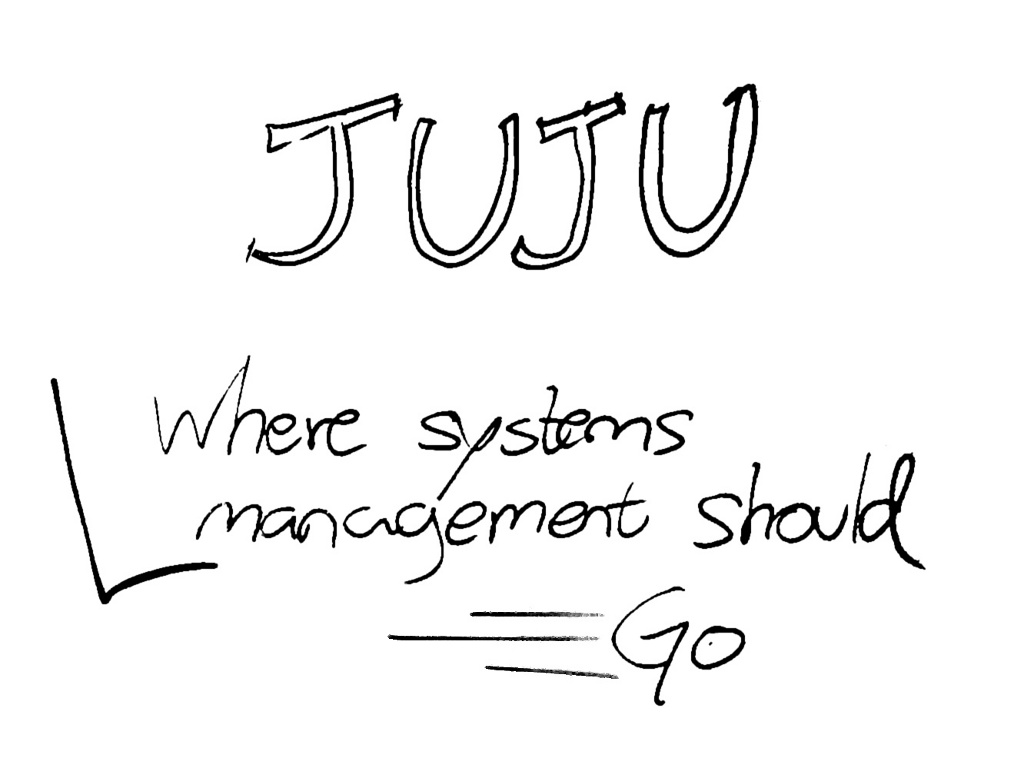 JUJU
Where systems
management should
Go